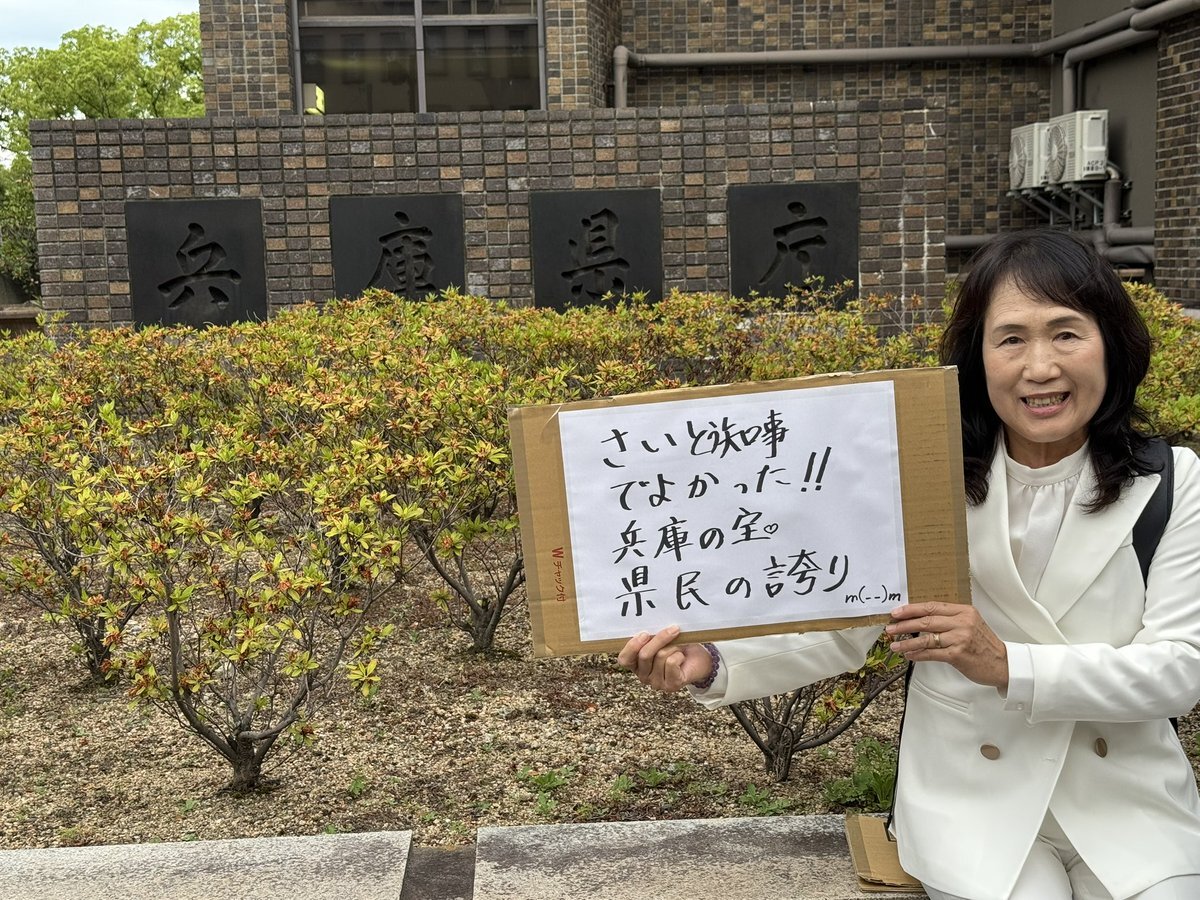 兵庫県庁
さいと被知事
でよかった!!
兵庫の宝。
県民の誇り
m(--)m
Wチャック付